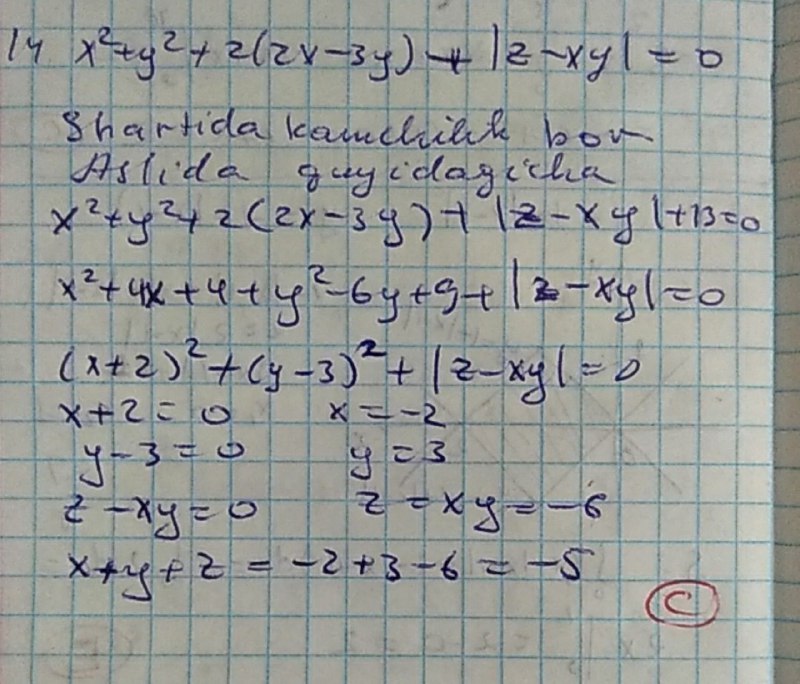 14 x²+y²+2(2x-3y)+|z-xy|=0
Shartida kamchilik bor
Aslida quyidagicha
x²+y²+2(2x-3y)+|z-xy|+13=0
x²+4x+4+y²-6y+9+|z-xy|=0
(x+2)²+(y-3)²+|z-xy|=0
x+2=0 x=-2
y-3=0 y=3
z-xy=0 z=xy=-6
x+y+z=-2+3-6=-5
C